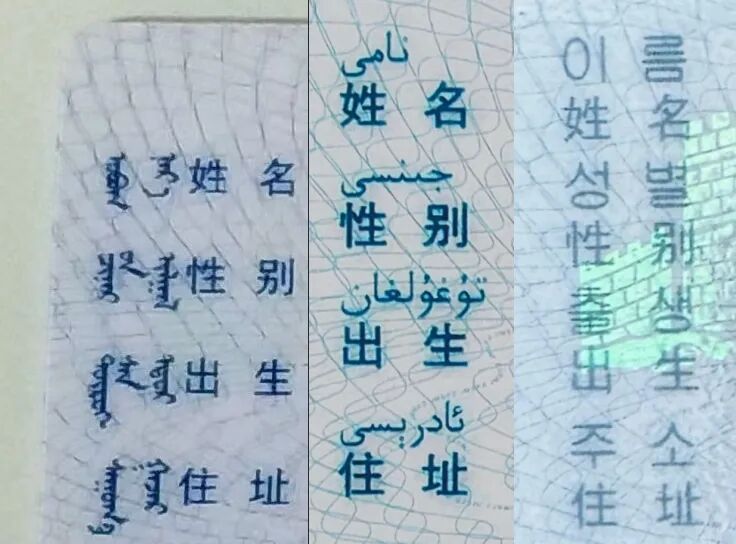 姓 名
性 别
出 生
住 址
نامى
姓 名
جىنسى
性 别
تۇغۇلغان
出 生
ئادرېسى
住 址
이 름
姓 名
성 별
性 别
출 생
出 生
주 소
住 址